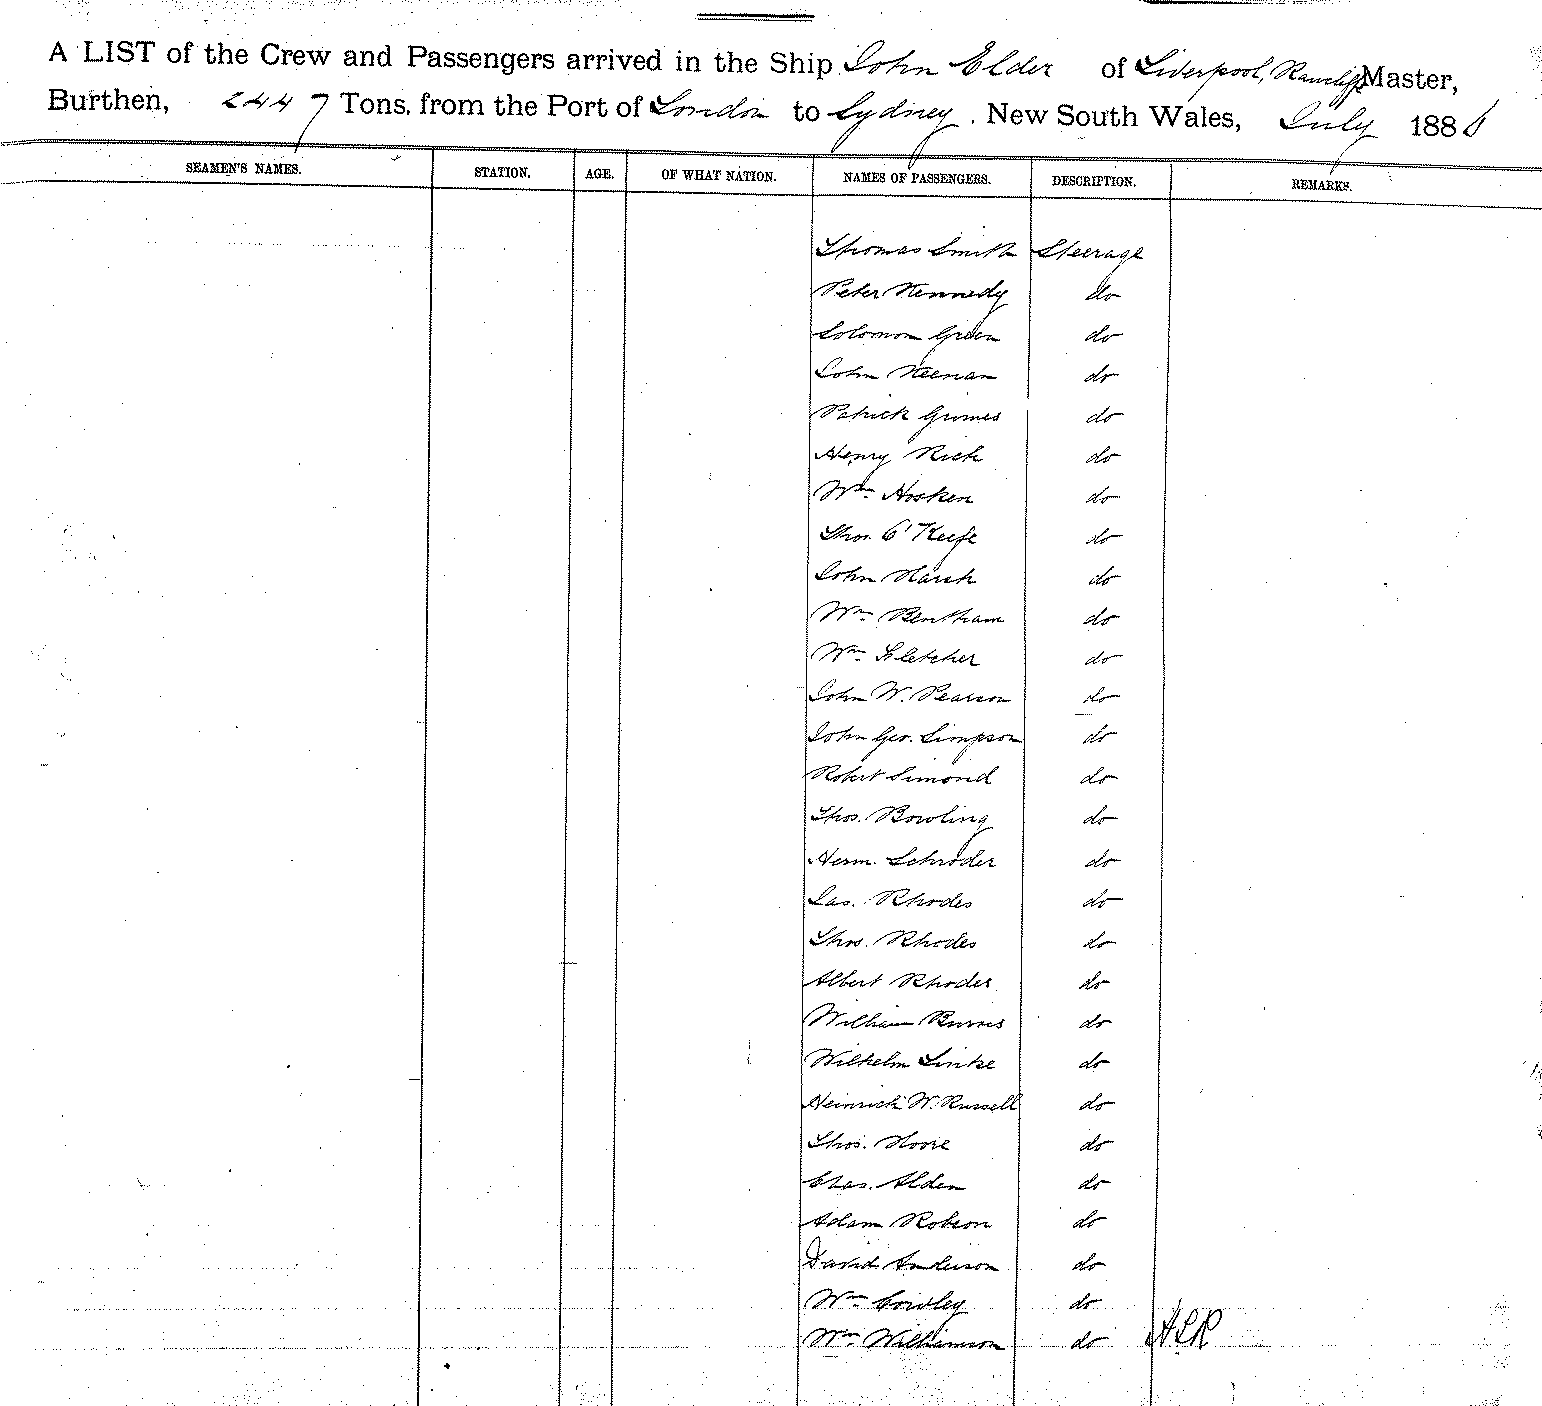 A LIST of the Crew and Passengers arrived in the Ship John Elder of Liverpool, Master,
Burthen, 2447 Tons, from the Port of London to Sydney. New South Wales, July 1886
SEAMEN'S NAMES. STATION. AGE. OF WHAT NATION. NAMES OF PASSENGERS. DESCRIPTION. REMARKS.
Thomas Smith Steerage
Peter Kennedy do
Solomon Green do
John Keenan do
Patrick Grimes do
Henry Rich do
Wm Hosken do
Thos. O'Keefe do
John do
Wm Bentham do
Wm Fletcher do
John W. Pearson do
John Geo. Simpson do
Robert Simond do
Thos. Bowling do
Herm. Schroder do
Jas. Rhodes do
Thos. Rhodes do
Albert Rhodes do
William Burns do
Wilhelm Linke do
Heinrich W. Russell do
Thos. Moore do
Chas. Alden do
Adam Robson do
David Anderson do
Wm Cowley do
Wm Williamson do